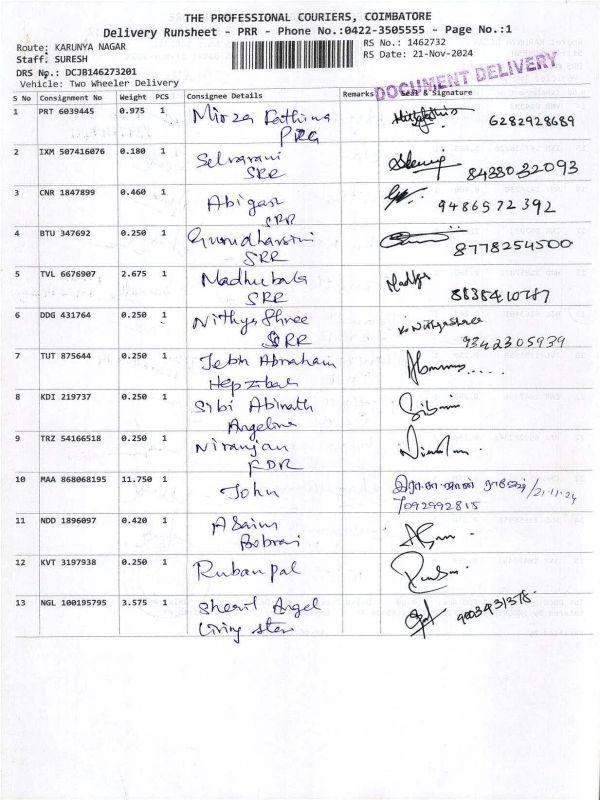 THE PROFESSIONAL COURIERS, COIMBATORE
Delivery Runsheet - PRR - Phone No.:0422-3505555 - Page No.:1
Route: KARUNYA NAGAR
RS No.: 1462732
Staff: SURESH
RS Date: 21-Nov-2024
DRS No.: DCJB146273201
Vehicle: Two Wheeler Delivery
DOCUMENT DELIVERY
S No Consignment No Weight PCS Consignee Details Remarks Seal & Signature
1 PRT 6039445 0.975 1 Mirza Fathima 6282928689
PRG
2 IXM 507416076 0.180 1 Selvarani 8438032093
SRR
3 CNR 1847899 0.460 1 Abigail 9486572392
SRR
4 BTU 347692 0.250 1 Gurudharsini 8778254500
SRR
5 TVL 6676907 2.675 1 Madhubala
SRR
6 DDG 431764 0.250 1 Nithya Shree K Nithyashree
SRR 9342305939
7 TUT 875644 0.250 1 Jebin Abraham
Hepzibah
8 KDI 219737 0.250 1 Sibi Abinath
Angeline
9 TRZ 54166518 0.250 1 Niranjan
KDR
10 MAA 868068195 11.750 1 John /21.11.24
7092992815
11 NDD 1896097 0.420 1
12 KVT 3197938 0.250 1 Rubanpal
13 NGL 100195795 3.575 1 Sheril Angel 9003431378
Living